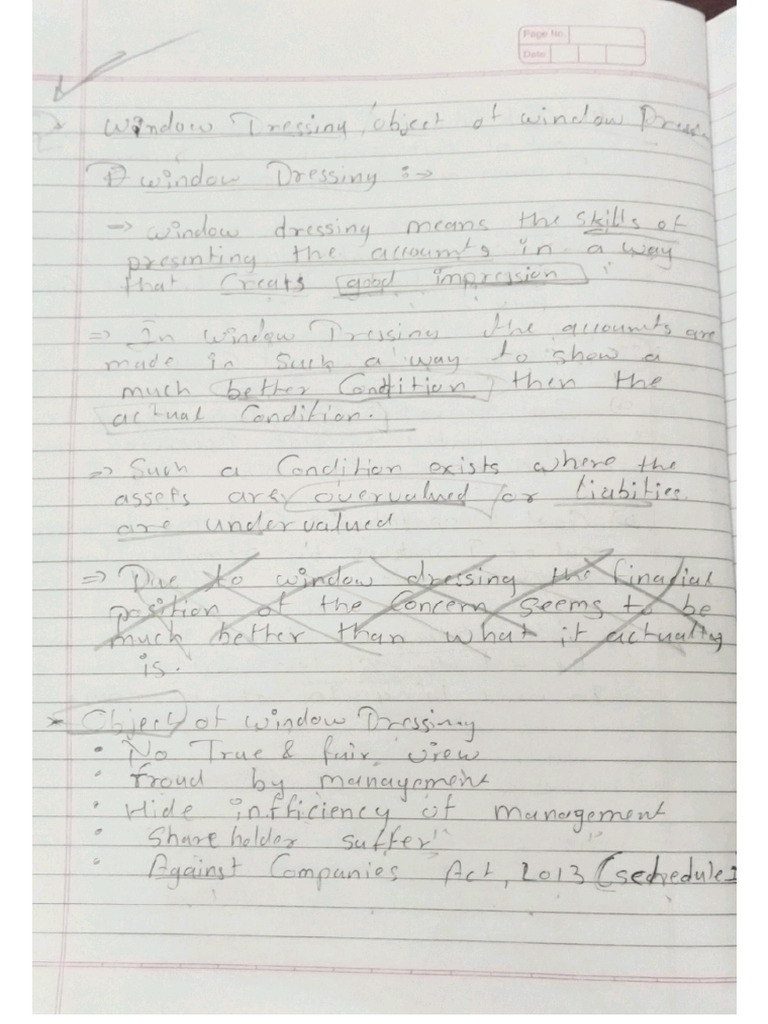 Page No.
Date
Window Dressing / object of window Dress
window Dressing :->
=> window dressing means the skills of
presenting the accounts in a way
that creats good impression
=> In window Dressing the accounts are
made in such a way to show a
much better Condition then the
actual Condition.
=> Such a Condition exists where the
assets are overvalued / or liabities
are undervalued
=> Due to window dressing the finacial
position of the Concern seems to be
much better than what it actually
is.
Object of window Dressing
• No True & fair view
• froud by management
• Hide infficiency of management
• Share holder suffer
• Against Companies Act, 2013 (schedule